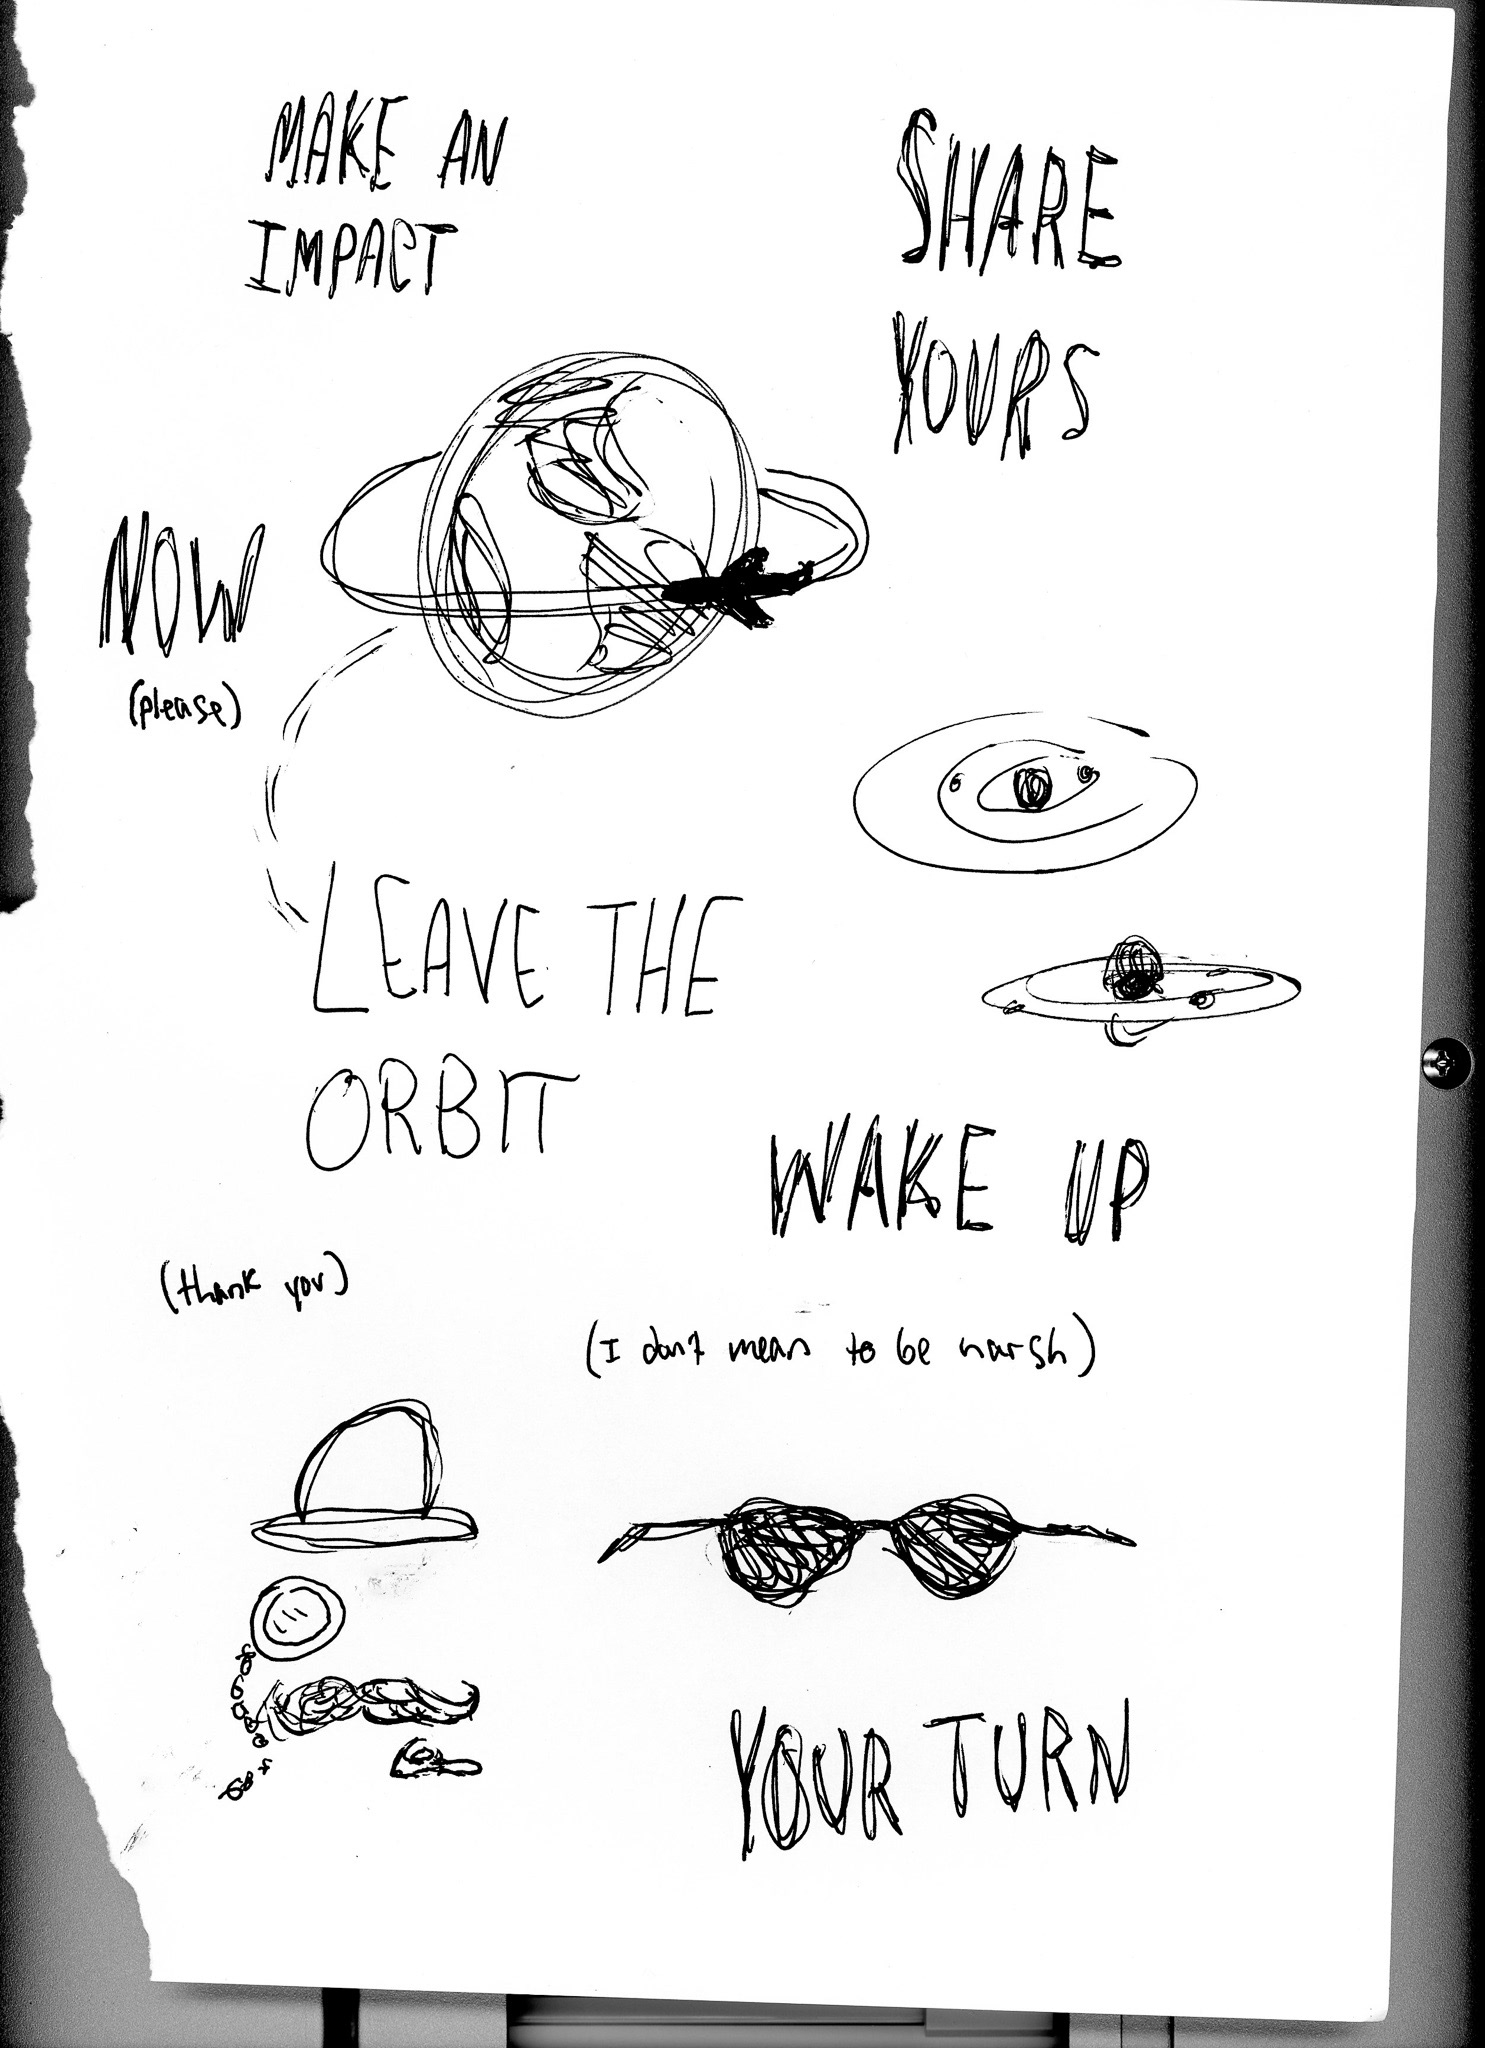 MAKE AN
IMPACT
SHARE
YOURS
NOW
(please)
LEAVE THE
ORBIT
WAKE UP
(thank you)
(I don't mean to be harsh)
YOUR TURN